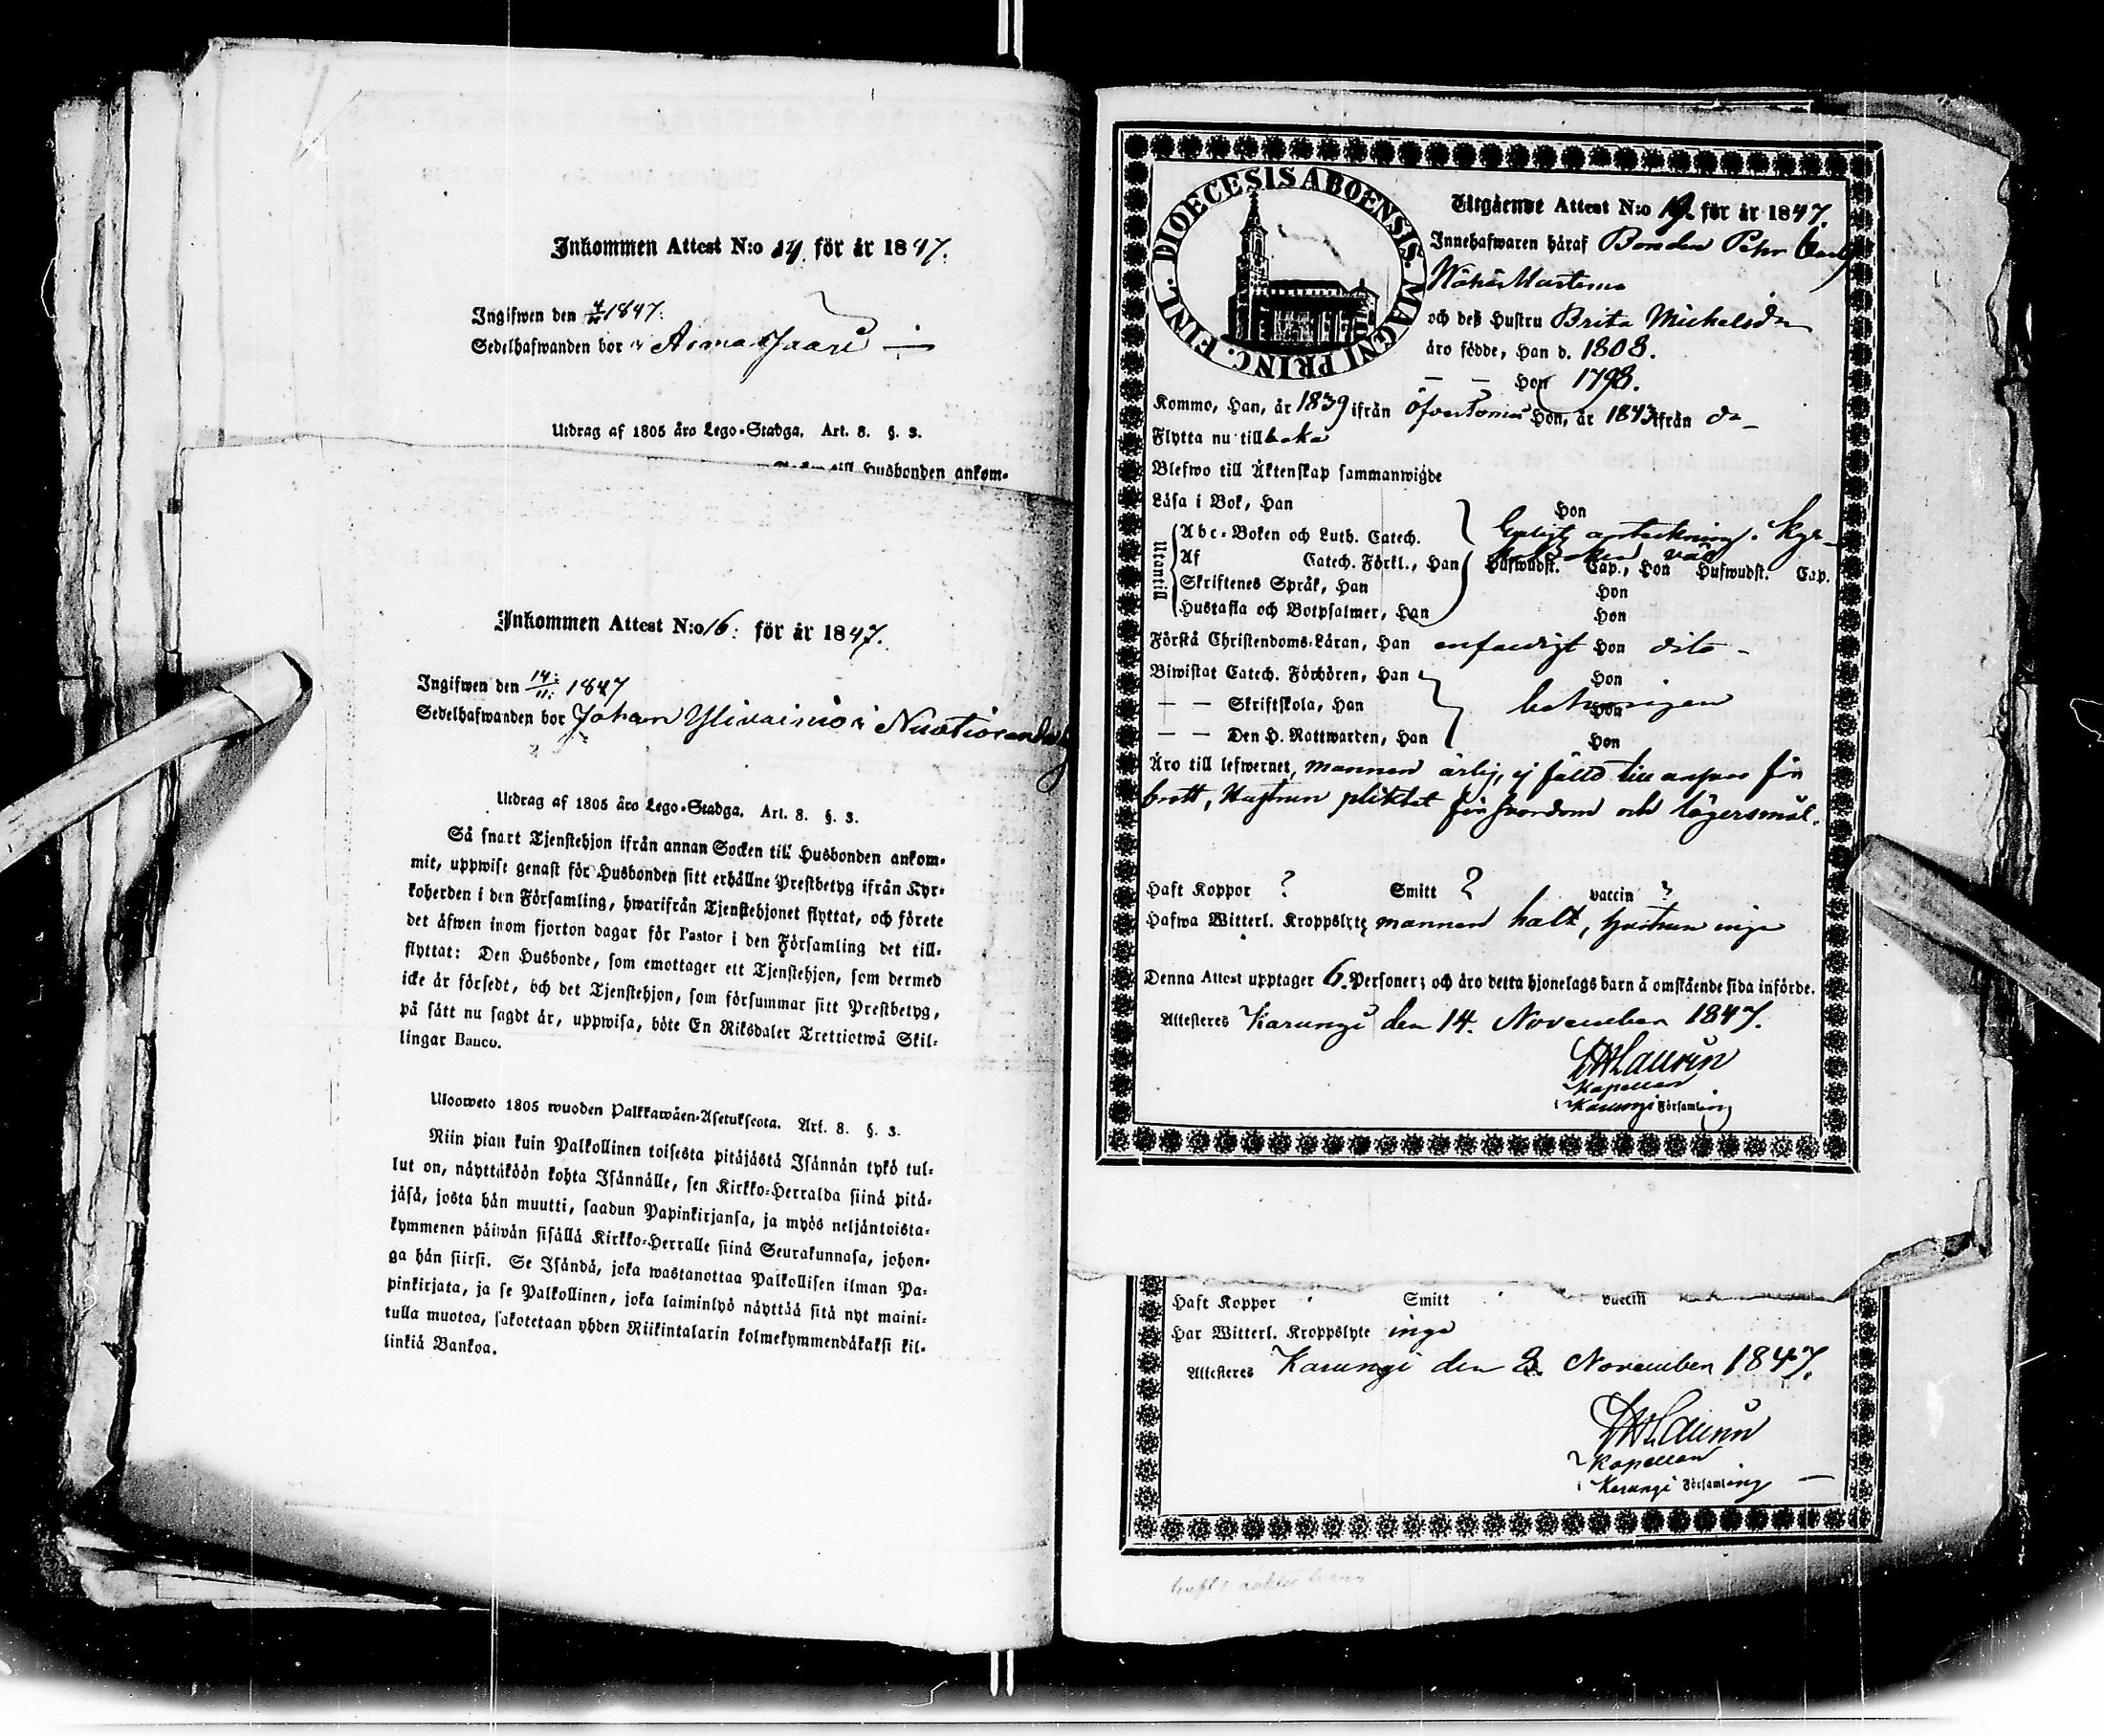 Inkommen Attest N:o 14. för år 1847.
Ingifwen den 4/11 1847.
Sedelhafwanden bor i
Utdrag af 1805 års Lego-Stadga. Art. 8. §. 3.
till Husbonden ankom-
Inkommen Attest N:o 16. för år 1847.
Ingifwen den 14/11 1847
Sedelhafwanden bor Johan Ylivainio i
Utdrag af 1805 års Lego-Stadga. Art. 8. §. 3.
Så snart Tjenstehjon ifrån annan Socken till Husbonden ankom-
mit, uppwise genast för Husbonden sitt erhållne Prestbetyg ifrån Kyr-
koherden i den Församling, hwarifrån Tjenstehjonet flyttat, och förete
det äfwen inom fjorton dagar för Pastor i den Församling det till-
flyttat: Den Husbonde, som emottager ett Tjenstehjon, som dermed
icke är försedt, och det Tjenstehjon, som försummar sitt Prestbetyg,
på sätt nu sagdt är, uppwisa, böte En Riksdaler Trettiotwå Skil-
lingar Banco.
Uloosweto 1805 wuoden Palkkawäen-Asetuksesta. Art. 8. §. 3.
Niin pian kuin Palkollinen toisesta pitäjästä Isännän tykö tul-
lut on, näyttäköön kohta Isännälle, sen Kirkko-Herralda siinä pitä-
jäsä, josta hän muutti, saadun Papinkirjansa, ja myös neljäntoista-
kymmenen päiwän sisällä Kirkko-Herralle siinä Seurakunnasa, johon-
ga hän siirsi. Se Isändä, joka wastanottaa Palkollisen ilman Pa-
pinkirjata, ja se Palkollinen, joka laiminlyö näyttää sitä nyt maini-
tulla muotoa, sakotetaan yhden Riikintalarin kolmekymmendäkaksi kil-
linkiä Bankoa.
DIOECESIS ABOENSIS. MAGNI PRINC. FINL.
Utgående Attest N:o 19. för år 1847.
Innehafwaren häraf Bonden Pehr
och deß Hustru Brita Michelsdr
äro födde, Han d. 1808.
— — Hon 1798.
Komme, Han, år 1839 ifrån Öfvertorneå Hon, år 1843 ifrån do
Flytta nu tillbaka
Blefwo till Äktenskap sammanwigde
Läsa i Bok, Han Hon
Utantill
Abc-Boken och Luth. Catech. Enligt anteckning i Kyr-
Af Catech. Förkl., Han Hufwudst. Cap., Hon Hufwudst. Cap.
Skriftenes Språk, Han Hon
Hustafla och Botpsalmer, Han Hon
Förstå Christendoms-Läran, Han enfaldigt Hon dito
Biwistat Catech. Förhören, Han Hon
— — Skriftskola, Han behörigen Hon
— — Den H. Nattwarden, Han Hon
Äro till lefwernet, mannen ärlig, ej fälld till ansvar för
brott, Hustrun pliktat för hordom och lägersmål.
Haft Koppor ? Smitt ? vaccin ?
Hafwa Witterl. Kroppslyte mannen halt, hustrun inga
Denna Attest upptager 6. Personer; och äro detta hjonelags barn å omstående sida införde.
Attesteres Karungi den 14. November 1847.
Laurin
Kapellan
i Karungi Församling
Haft Koppor Smitt vaccin
Har Witterl. Kroppslyte inga
Attesteres Karungi den 3. November 1847.
Laurin
Kapellan
i Karungi Församling